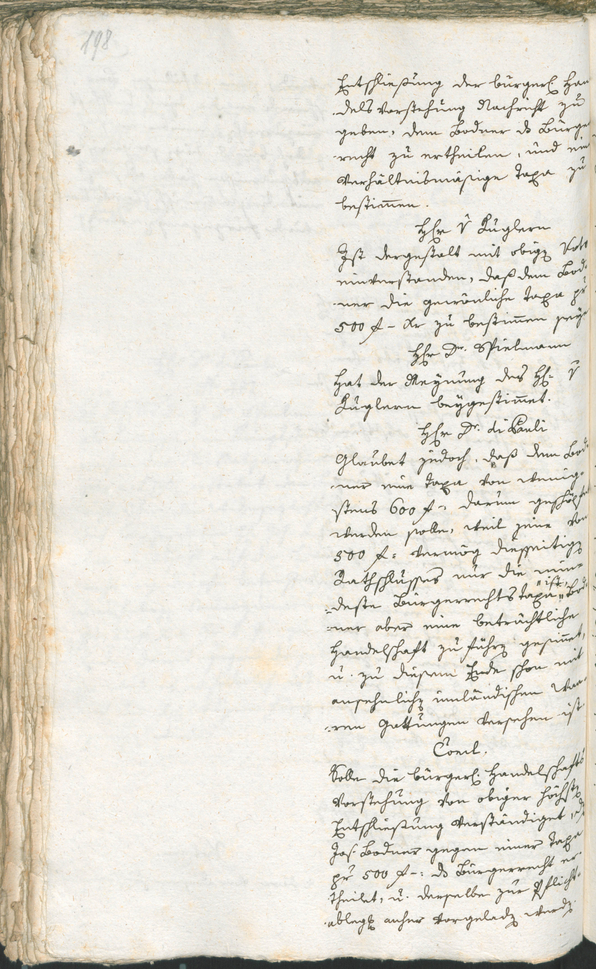 198
Entschließung der bürgerl. Han
dels Vorstehung Nachricht zu
geben, dem Bodner ds Bürger
recht zu ertheilen, und eine
Verhältnismäsige Taxa zu
bestimmen.
Hhr v Kuglern
Ist dergestalt mit obigen Voto
einverstanden, daß dem Bod-
ner die gewöhnliche Taxa pr
500 f zu bestimmen seye
Hhr Dr. Spielmann
Hat der Meynung des H: v
Kuglern beygestimmet.
Hhr Dr. di Pauli
Glaubet jedoch, daß dem Bod
ner eine Taxa von wenig-
stens 600 f: darum geschöpft
werden solle, weil jene von
500 f: vermög diesseitigen
Rathschlusses nur die min
deste Bürgerrechts Taxa ist, Bod
ner aber eine beträchtliche
Handelschaft zu führen gesinnet
u. zu diesem Ende schon mit
ansehnlichen inländischen Waa-
ren Gattungen versehen ist
Concl.
Solle die bürgerl. Handelschafts
Vorstehung von obiger höchsten
Entschließung verständiget,
Jos. Bodner gegen einer Taxa
pr 500 f: ds Bürgerrecht er
theilet, u. derselbe zur Pflicht-
ablegg anher vorgeladen werden.